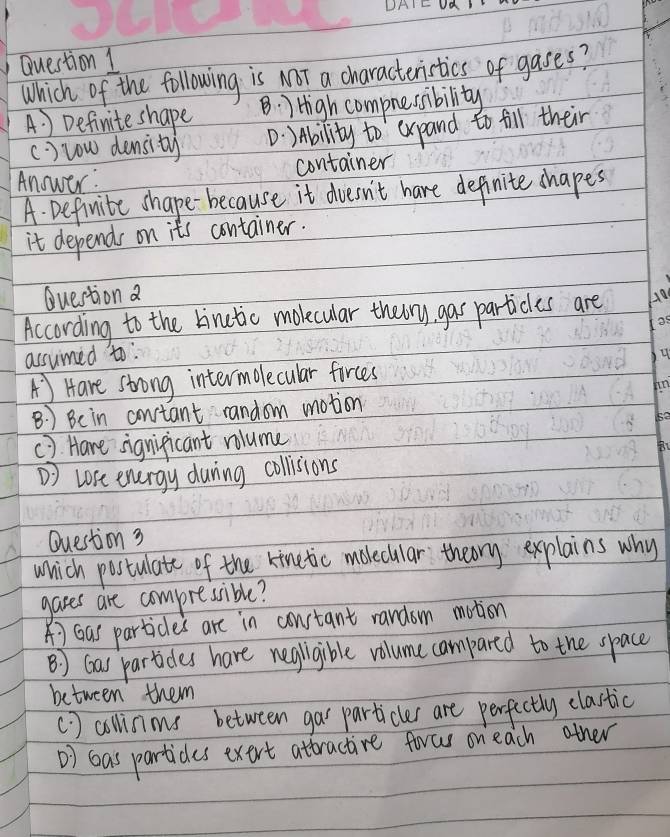 SCIENCE
DATE
Question 1
Which of the following is NOT a characteristics of gases?
A.) Definite shape B.) High compressibility
C.) Low density D.) Ability to expand to fill their
container
Answer:
A. Definite shape because it doesn't have definite shapes
it depends on its container.
Question 2
According to the kinetic molecular theory, gas particles are
assumed to:
A.) Have strong intermolecular forces
B.) Be in constant random motion
C.) Have significant volume
D.) Lose energy during collisions
Question 3
Which postulate of the kinetic molecular theory explains why
gases are compressible?
A.) Gas particles are in constant random motion
B.) Gas particles have negligible volume compared to the space
between them
C.) collisions between gas particles are perfectly elastic
D.) Gas particles exert attractive forces on each other